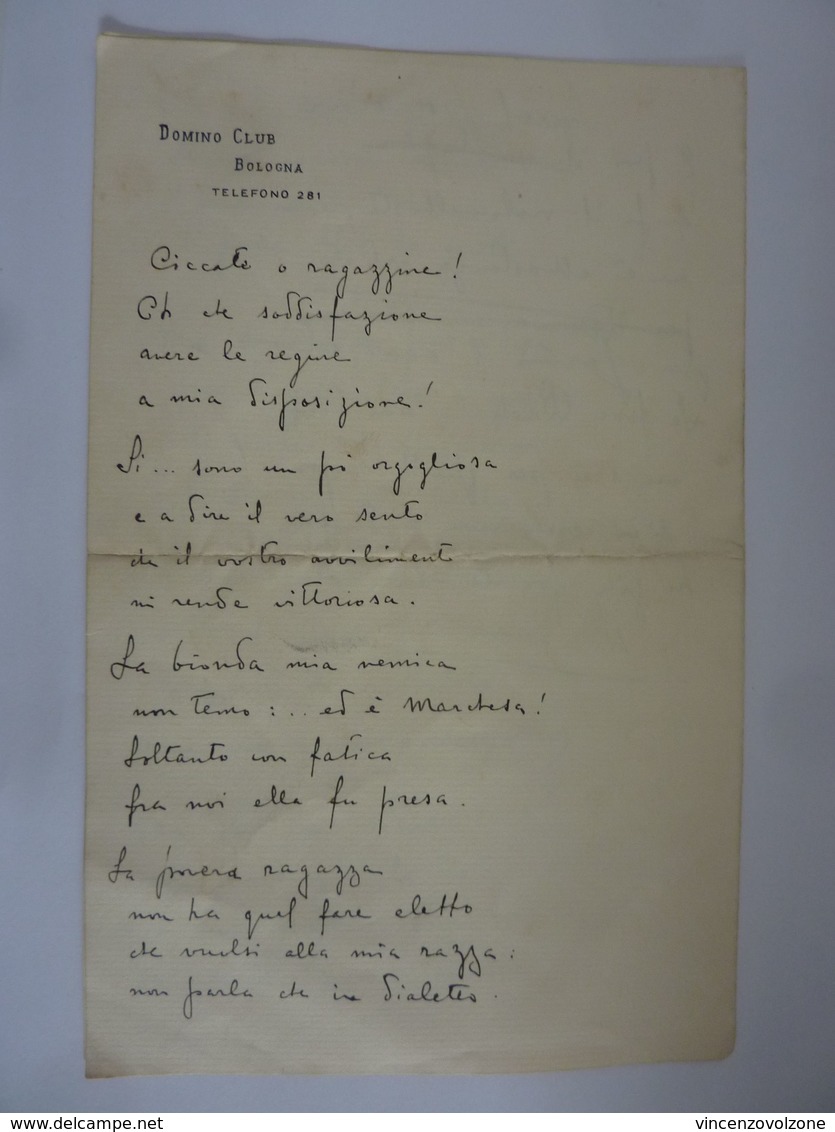 DOMINO CLUB
BOLOGNA
TELEFONO 281
Ciccate o ragazzine!
Oh che soddisfazione
avere le regine
a mia disposizione!
Si... sono un pò orgogliosa
e a dire il vero sento
che il vostro avvilimento
mi rende vittoriosa.
La bionda mia nemica
non temo:... ed è Marchesa!
Soltanto con fatica
fra noi ella fu presa.
La povera ragazza
non ha quel fare eletto
che vuolsi alla mia razza:
non parla che in dialetto.
delcampe.net
vincenzovolzone